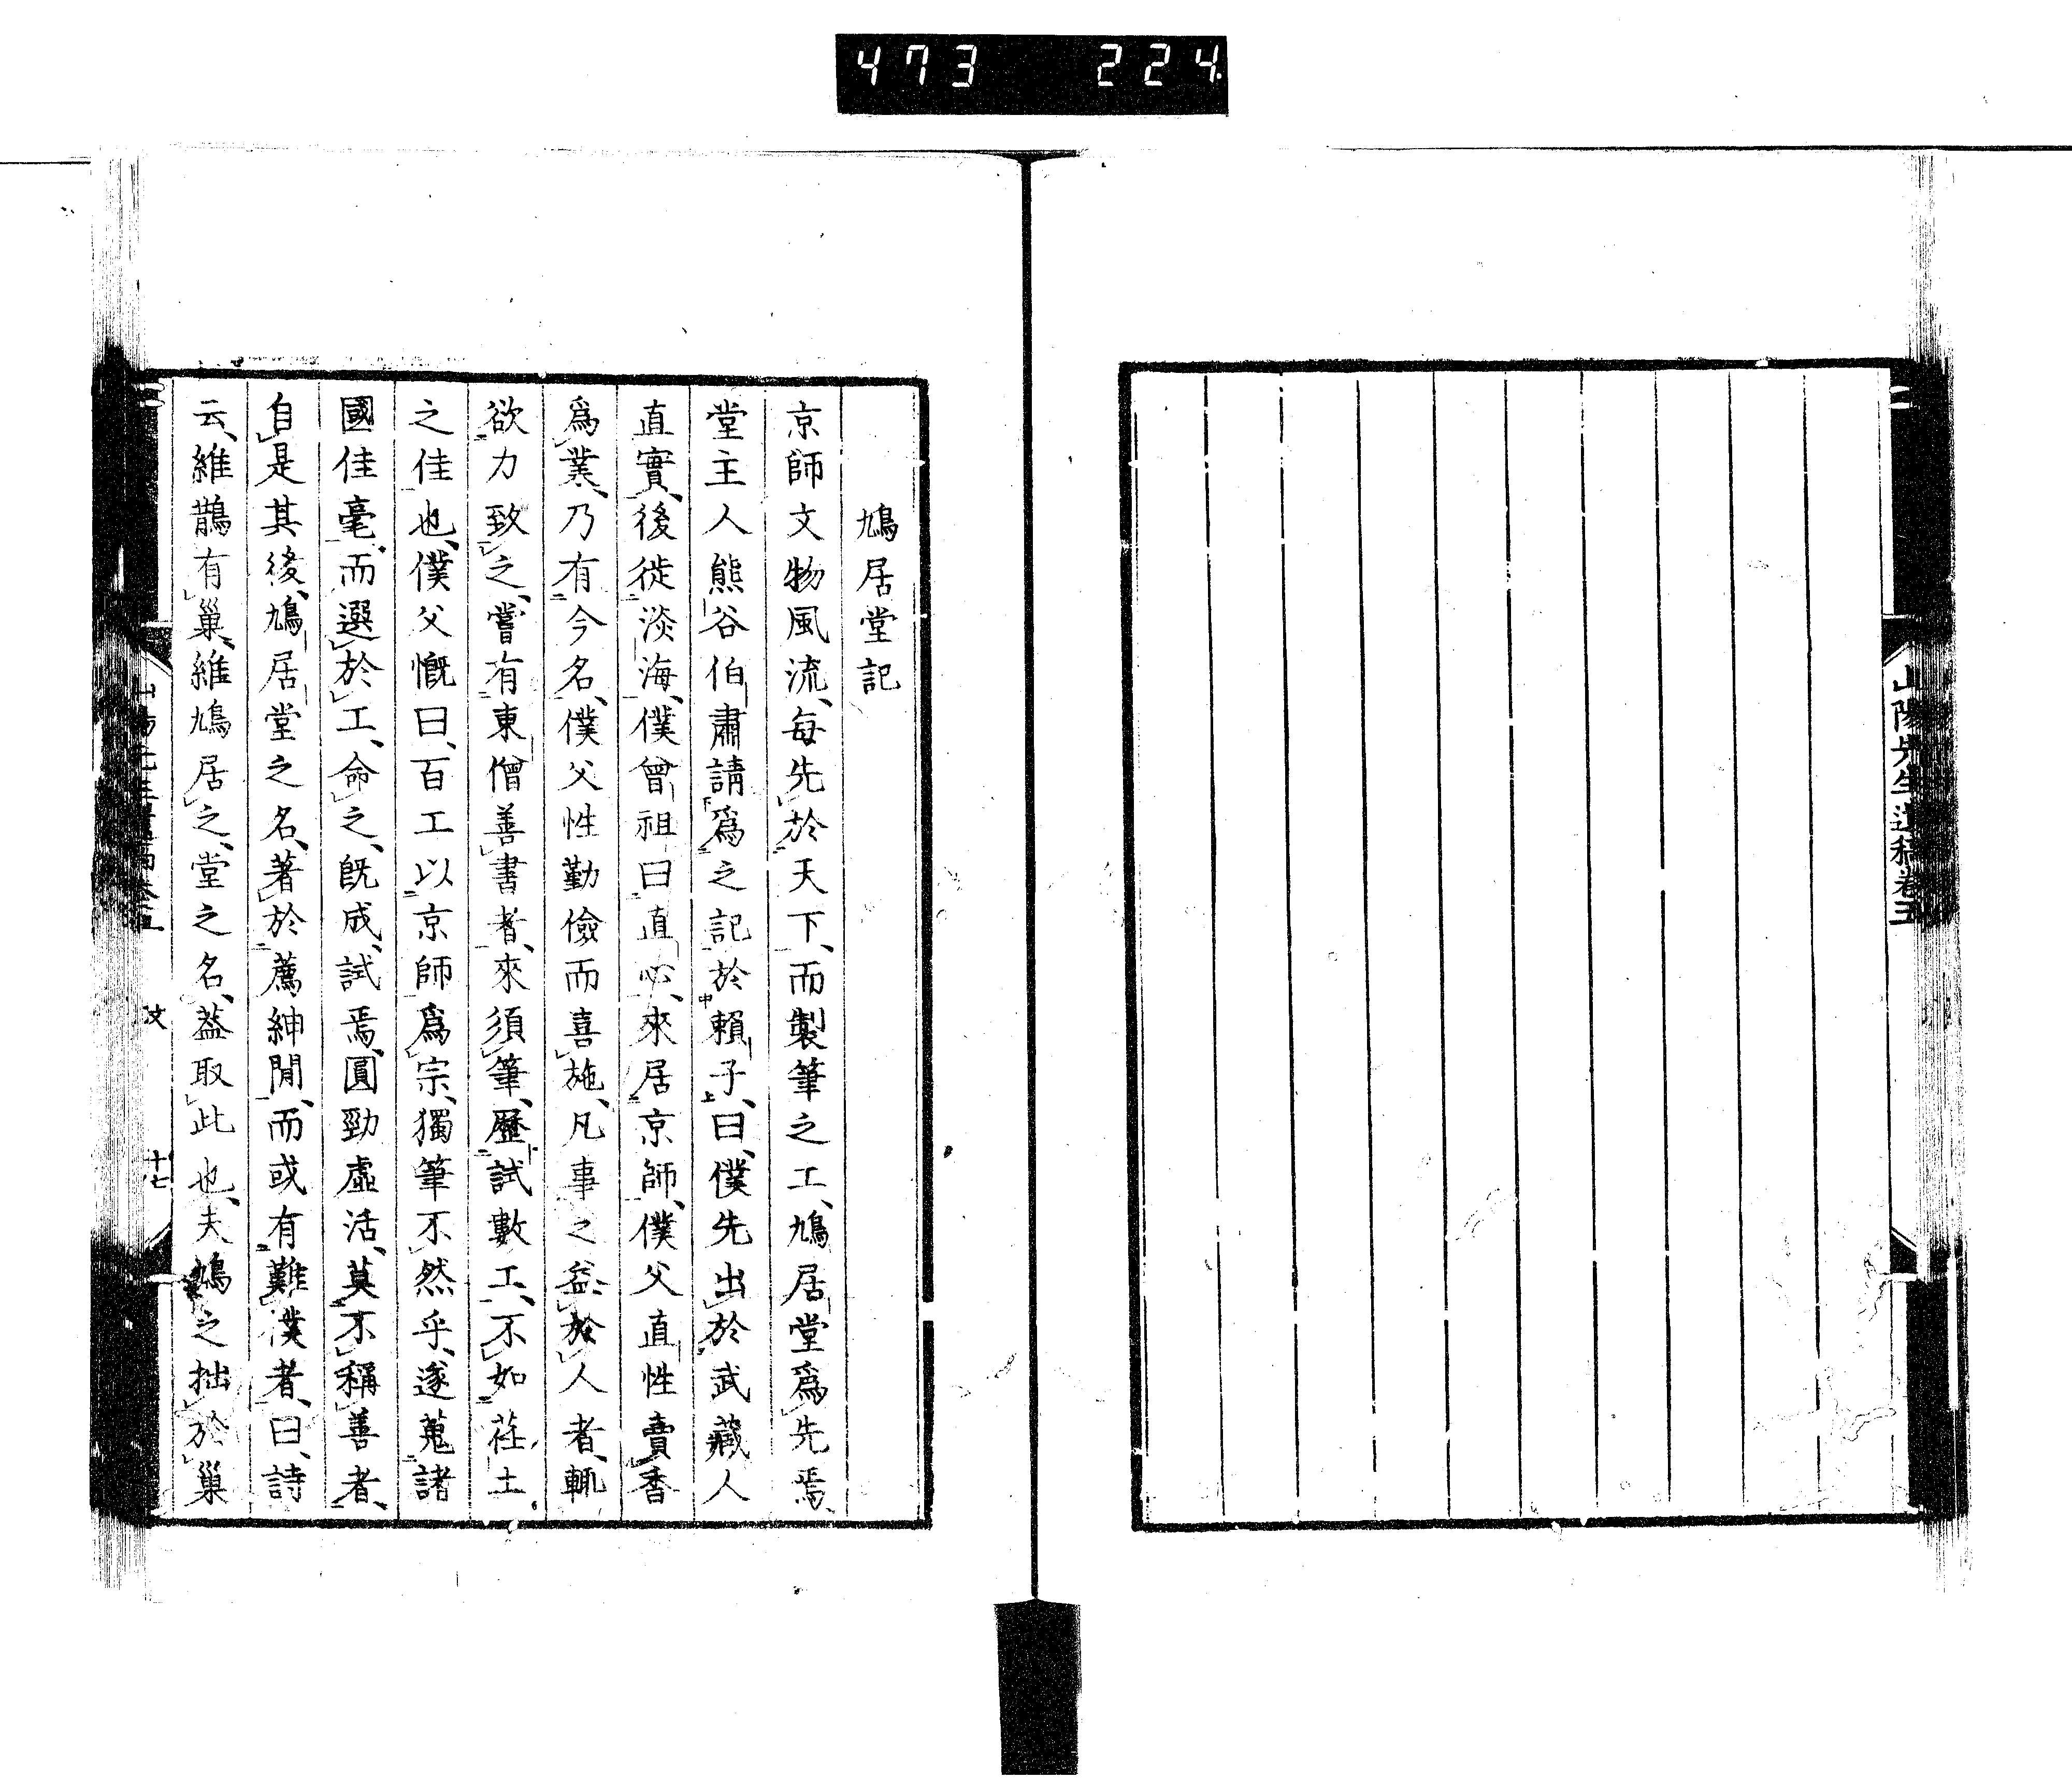 473 224
山陽先生遺稿卷五
鳩居堂記
京師文物風流、每先於天下、而製筆之工、鳩居堂爲先焉、
堂主人熊谷伯肅請爲之記於賴子、曰、僕先出於武藏人
直實、後徙淡海、僕曾祖曰直心、來居京師、僕父直性賣香
爲業、乃有今名、僕父性勤儉而喜施、凡事之益於人者、輒
欲力致之、嘗有東僧善書者、來須筆、歷試數工、不如荏土
之佳也、僕父慨曰、百工以京師爲宗、獨筆不然乎、遂蒐諸
國佳毫、而選於工、命之、既成、試焉、圓勁虛活、莫不稱善者、
自是其後、鳩居堂之名、著於薦紳閒、而或有難僕者、曰、詩
云、維鵲有巢、維鳩居之、堂之名、蓋取此也、夫鳩之拙於巢
文 十七